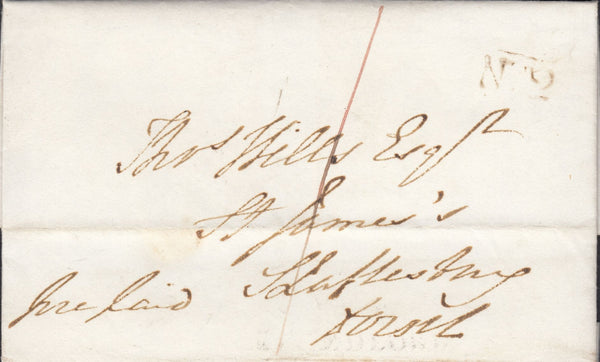 No 2
Thos Wills Esqr
St James's
Shaftesbury
Dorset
Pre paid
1